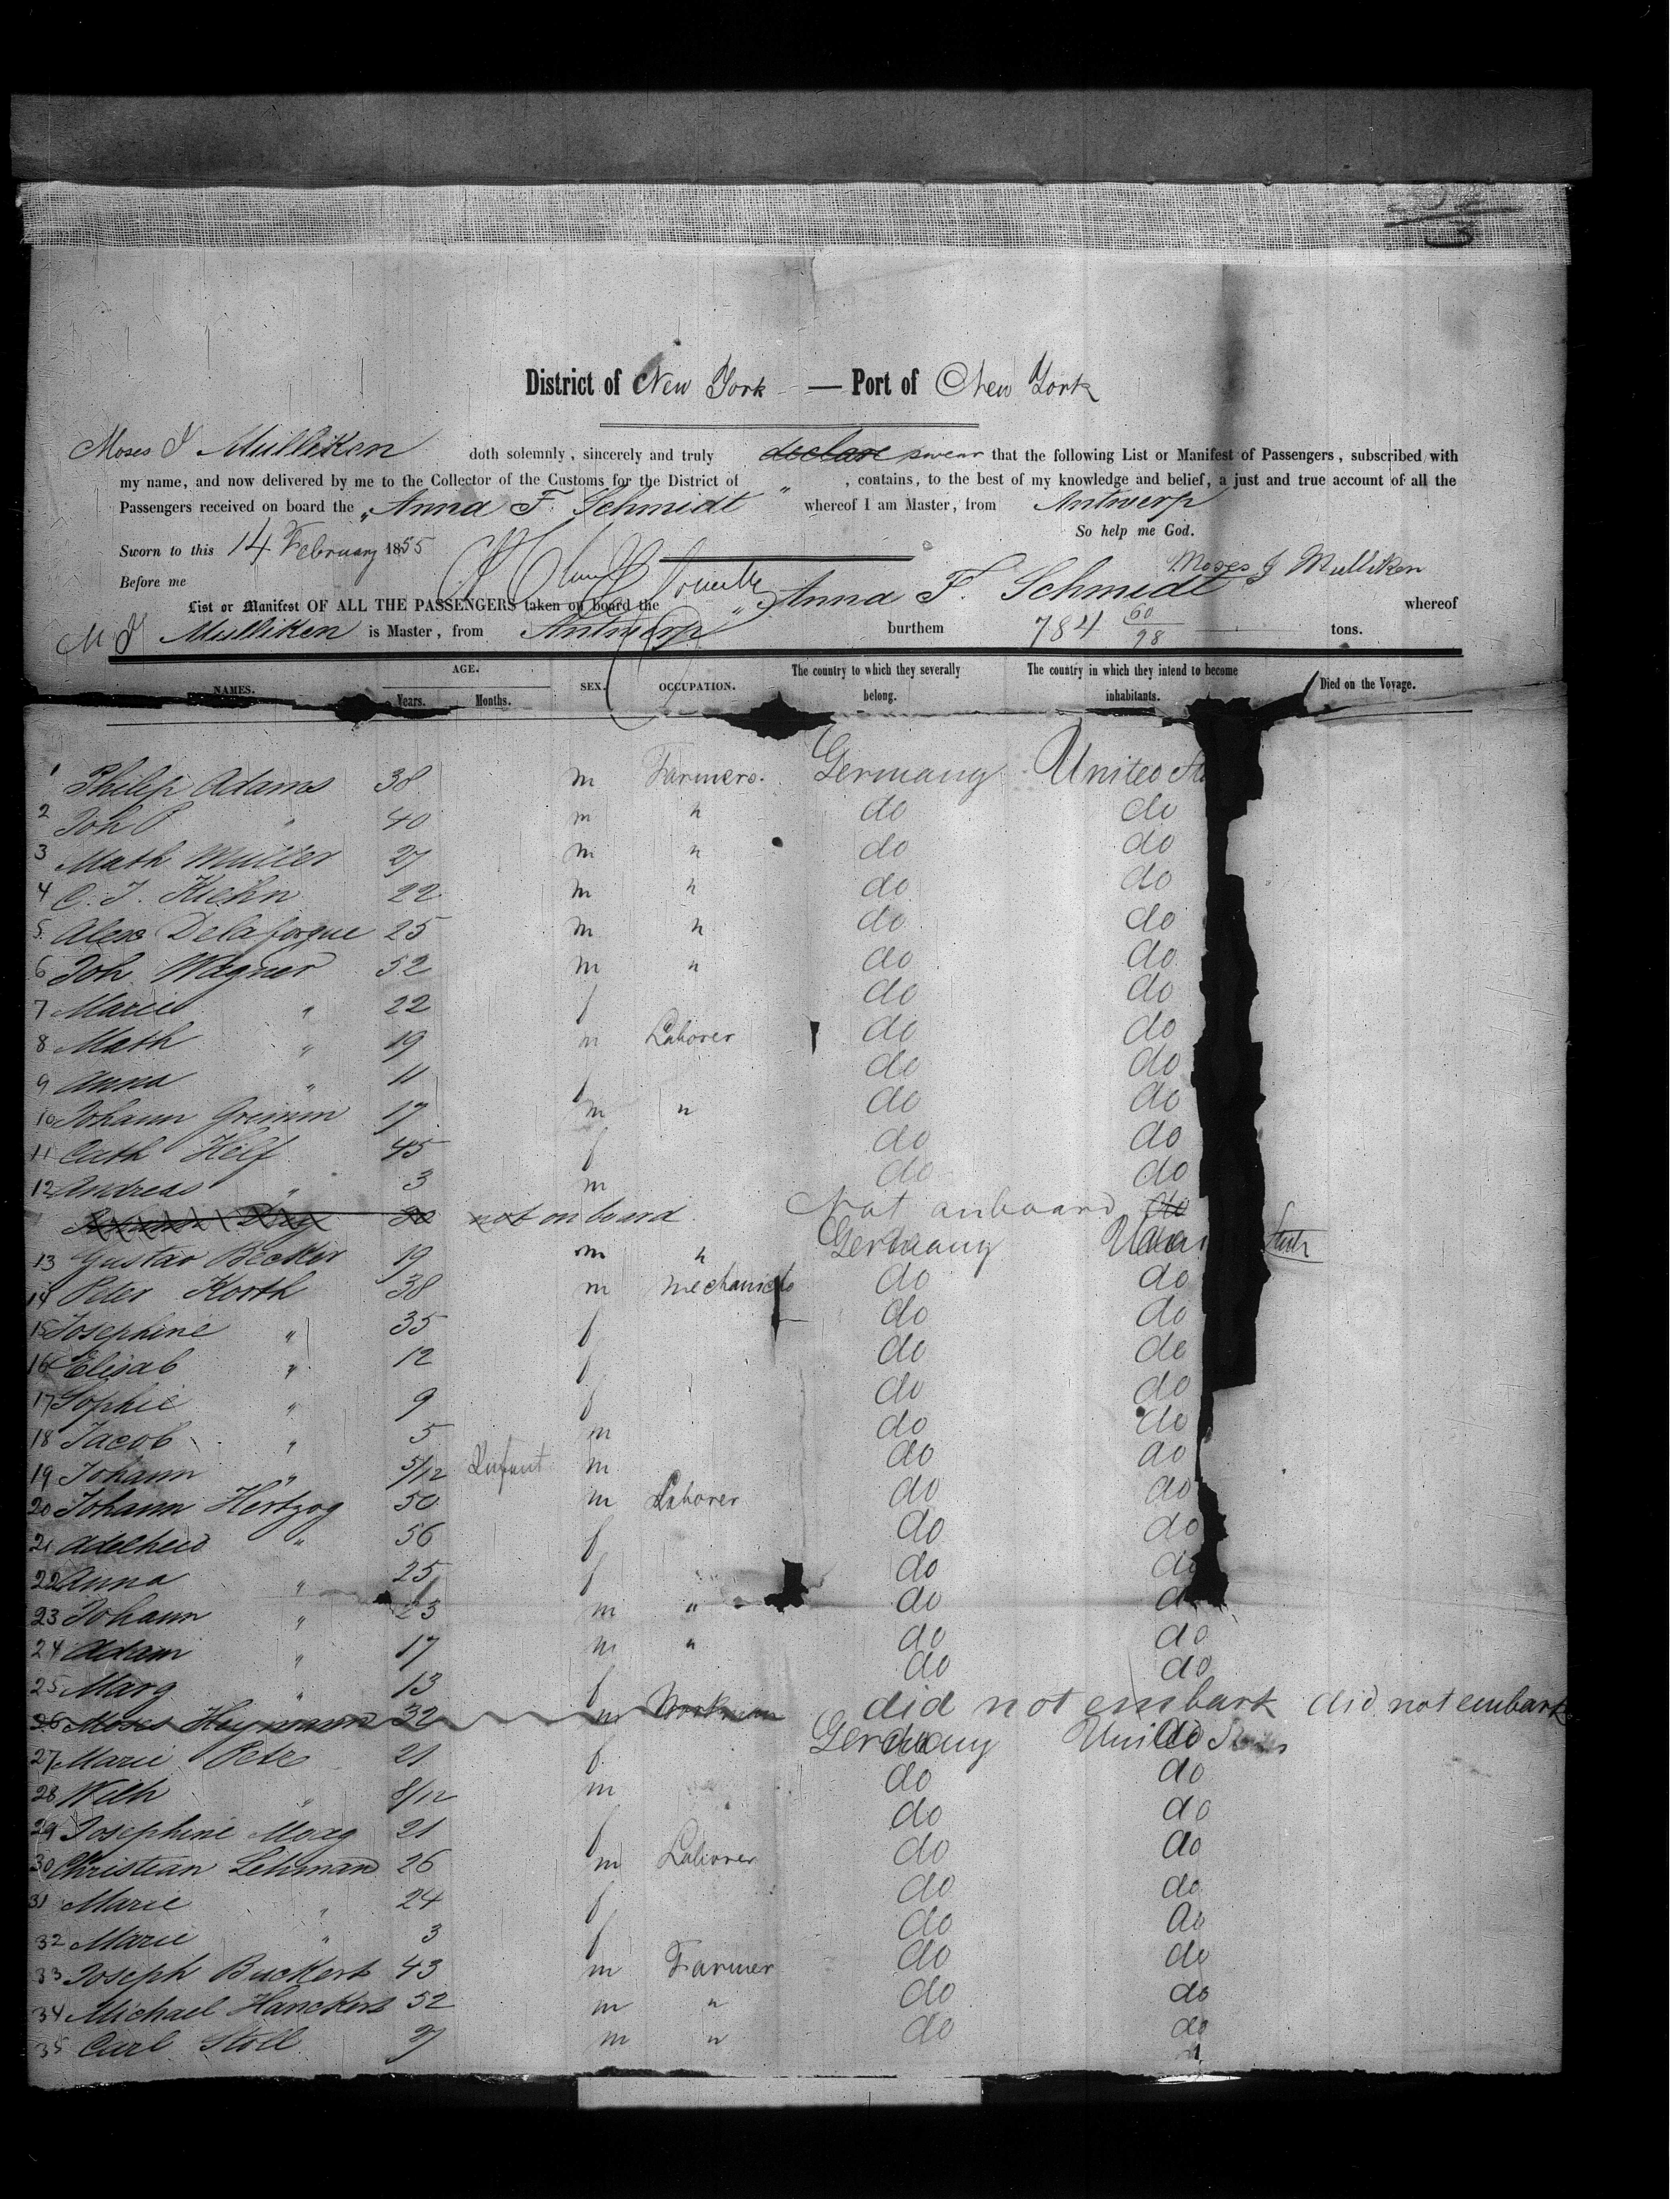 3
District of New York — Port of New York
Moses J Mulliken doth solemnly, sincerely and truly declare swear that the following List or Manifest of Passengers, subscribed with
my name, and now delivered by me to the Collector of the Customs for the District of " , contains, to the best of my knowledge and belief, a just and true account of all the
Passengers received on board the „Anna F. Schmidt" whereof I am Master, from Antwerp
So help me God.
Sworn to this 14 February 1855
Moses J Mulliken
Before me
List or Manifest OF ALL THE PASSENGERS taken on board the „Anna F. Schmidt whereof
M J Mulliken is Master, from Antwerp burthem 784 60/98 tons.
NAMES. AGE. Years. Months. SEX. OCCUPATION. The country to which they severally belong. The country in which they intend to become inhabitants. Died on the Voyage.
1 Philip Adams 38 m Farmers. Germany United Sta
2 Joh P " 40 m " do do
3 Math Müller 27 m " do do
4 C. J. Kiehn 22 m " do do
5. Alex Delaforgue 25 m " do do
6 Joh. Wagner 52 m " do do
7 Marie " 22 f do do
8 Math " 19 m Laborer do do
9 Anna " 11 f do do
10 Johann Greimm 17 m " do do
11 Cath Heif 45 f do do
12 Andreas " 3 m do do
not on board Not onboard do
13 Gustav Becker 19 m " Germany States
14 Peter Korth 38 m mechanic do do
15 Josephine " 35 f do do
16 Elisab " 12 f do do
17 Sophie " 9 f do do
18 Jacob " 5 m do do
19 Johann " 5/12 Infant m do do
20 Johann Hertzog 50 m Laborer do do
21 Adelheid " 56 f do do
22 Anna " 25 f do do
23 Johann " 23 m " do do
24 Adam " 17 m " do do
25 Marg " 13 f do do
26 Moses Heymann 32 m Workman did not embark did not embark
27 Marie Pete 21 f Germany United States
28 Wilh " 8/12 m do do
29 Josephine Moag 21 f do do
30 Christian Lehmann 26 m Laborer do do
31 Marie " 24 f do do
32 Marie " 3 f do do
33 Joseph Buckert 43 m Farmer do do
34 Michael Hanckert 52 m " do do
35 Carl Stoll 27 m " do do